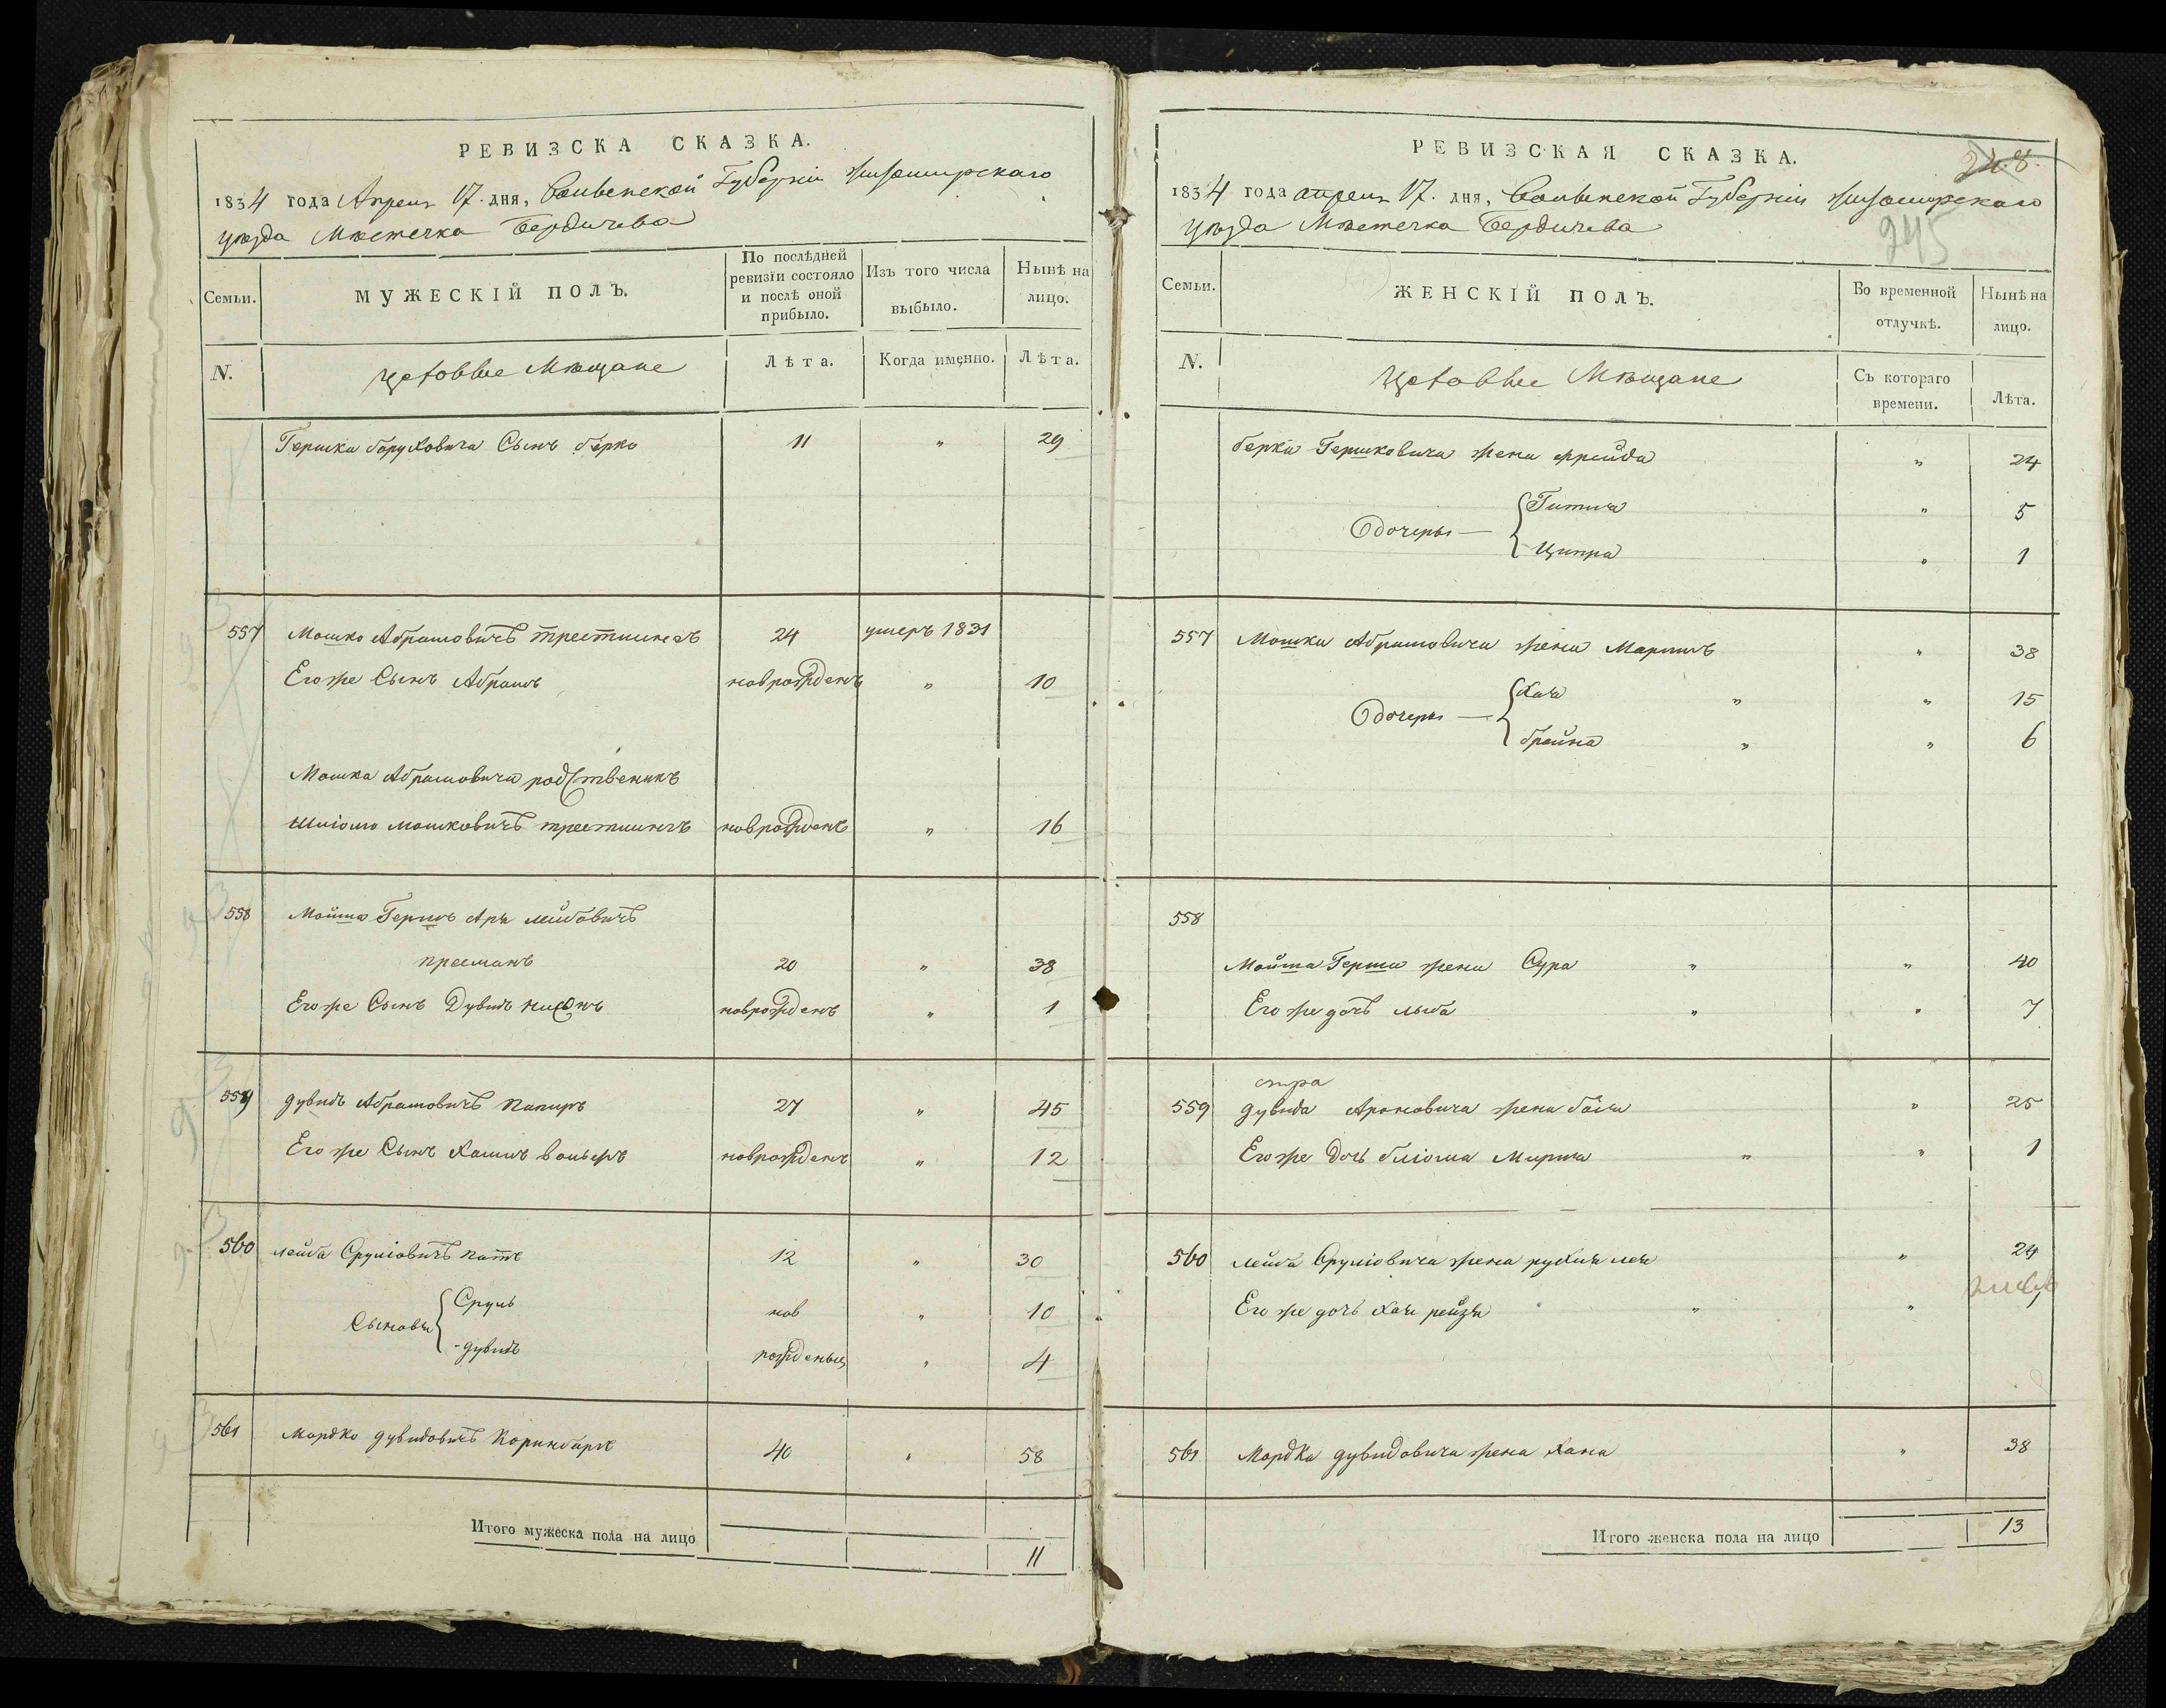 РЕВИЗСКА СКАЗКА.
1834 года Апреля 17. дня, Волынской Губерніи Житомирскаго
уѣзда Мѣстечка Бердичева
Семьи.
МУЖЕСКІЙ ПОЛЪ.
По послѣдней ревизіи состояло и послѣ оной прибыло.
Изъ того числа выбыло.
Нынѣ на лицо.
N.
Цеховые Мѣщане
Лѣта.
Когда именно.
Лѣта.
Гершка боруховича Сынъ берко 11 " 29
557 Мошко Абрамовичъ 24 умеръ 1831
Его же Сынъ Абрамъ новрожденъ " 10
Мошка Абрамовича родственикъ
Шліома мошковичъ новрожденъ " 16
558 Мойша Гершъ Арн лейбовичъ
пресманъ 20 " 38
Его же Сынъ Дувидъ нисонъ новрожденъ " 1
559 дувидъ Абрамовичъ Папиръ 27 " 45
Его же Сынъ Хаимъ вольфъ новрожденъ " 12
560 лейба Сруліовичъ патъ 12 " 30
Сыновья Сруль нов " 10
дувидъ рожденыи " 4
561 Мордко дувидовичъ 40 " 58
Итого мужеска пола на лицо 11
РЕВИЗСКАЯ СКАЗКА.
248.
1834 года апреля 17. дня, Волынской Губерніи Житомирскаго
уѣзда Мѣстечка Бердичева
245
Семьи.
ЖЕНСКІЙ ПОЛЪ.
Во временной отлучкѣ.
Нынѣ на лицо.
N.
Цеховые Мѣщане
Съ котораго времени.
Лѣта.
берка Гершковича жена фрейда " 24
дочеры Гитля " 5
Ципра " 1
557 Мошка Абрамовича жена Маріямъ " 38
дочеры Хая " " 15
брайна " " 6
558
Мойша Герша жена Сура " " 40
Его же дочъ " " 7
559 дувида Ароновича жена бася " 25
Его же дочь бліома Мирля " " 1
560 лейба Сруліовича жена рухля лея " 24
Его же дочъ Хая рейзя " "
561 Мордка дувидовича жена Хана " 38
Итого женска пола на лицо 13